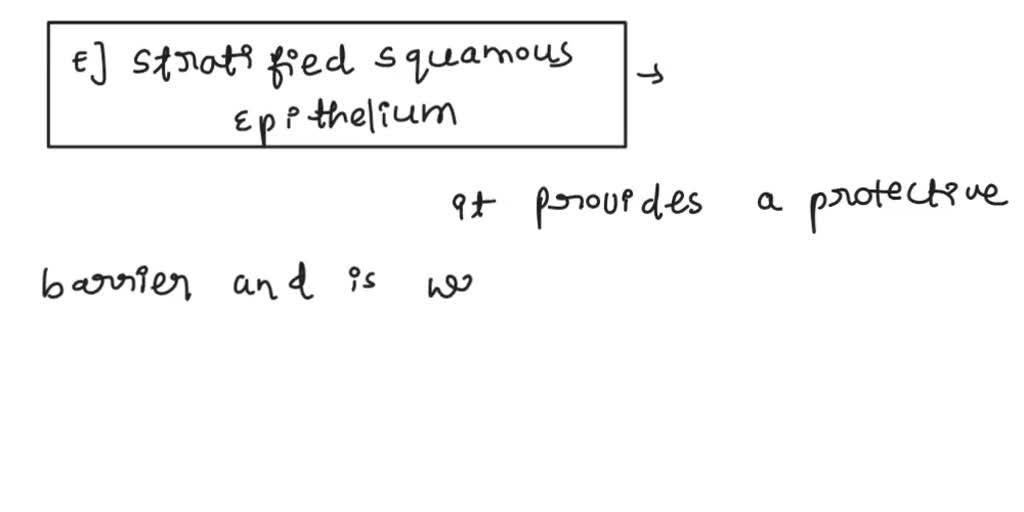 E] Stratified squamous →
Epithelium
It provides a protective
barrier and is